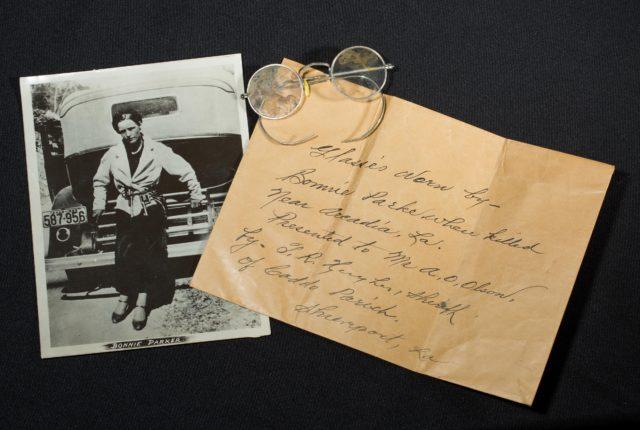 587-956
BONNIE PARKER
Glasses worn by-
Bonnie Parke when killed
Near Arcadia, La.
Presented to Mr A. O. Olson,
by- T. R. Hughes, Sheriff
of Caddo Parish.
Shreveport, La